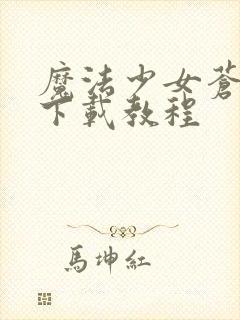 魔法少女蒼
下載教程
馬坤紅